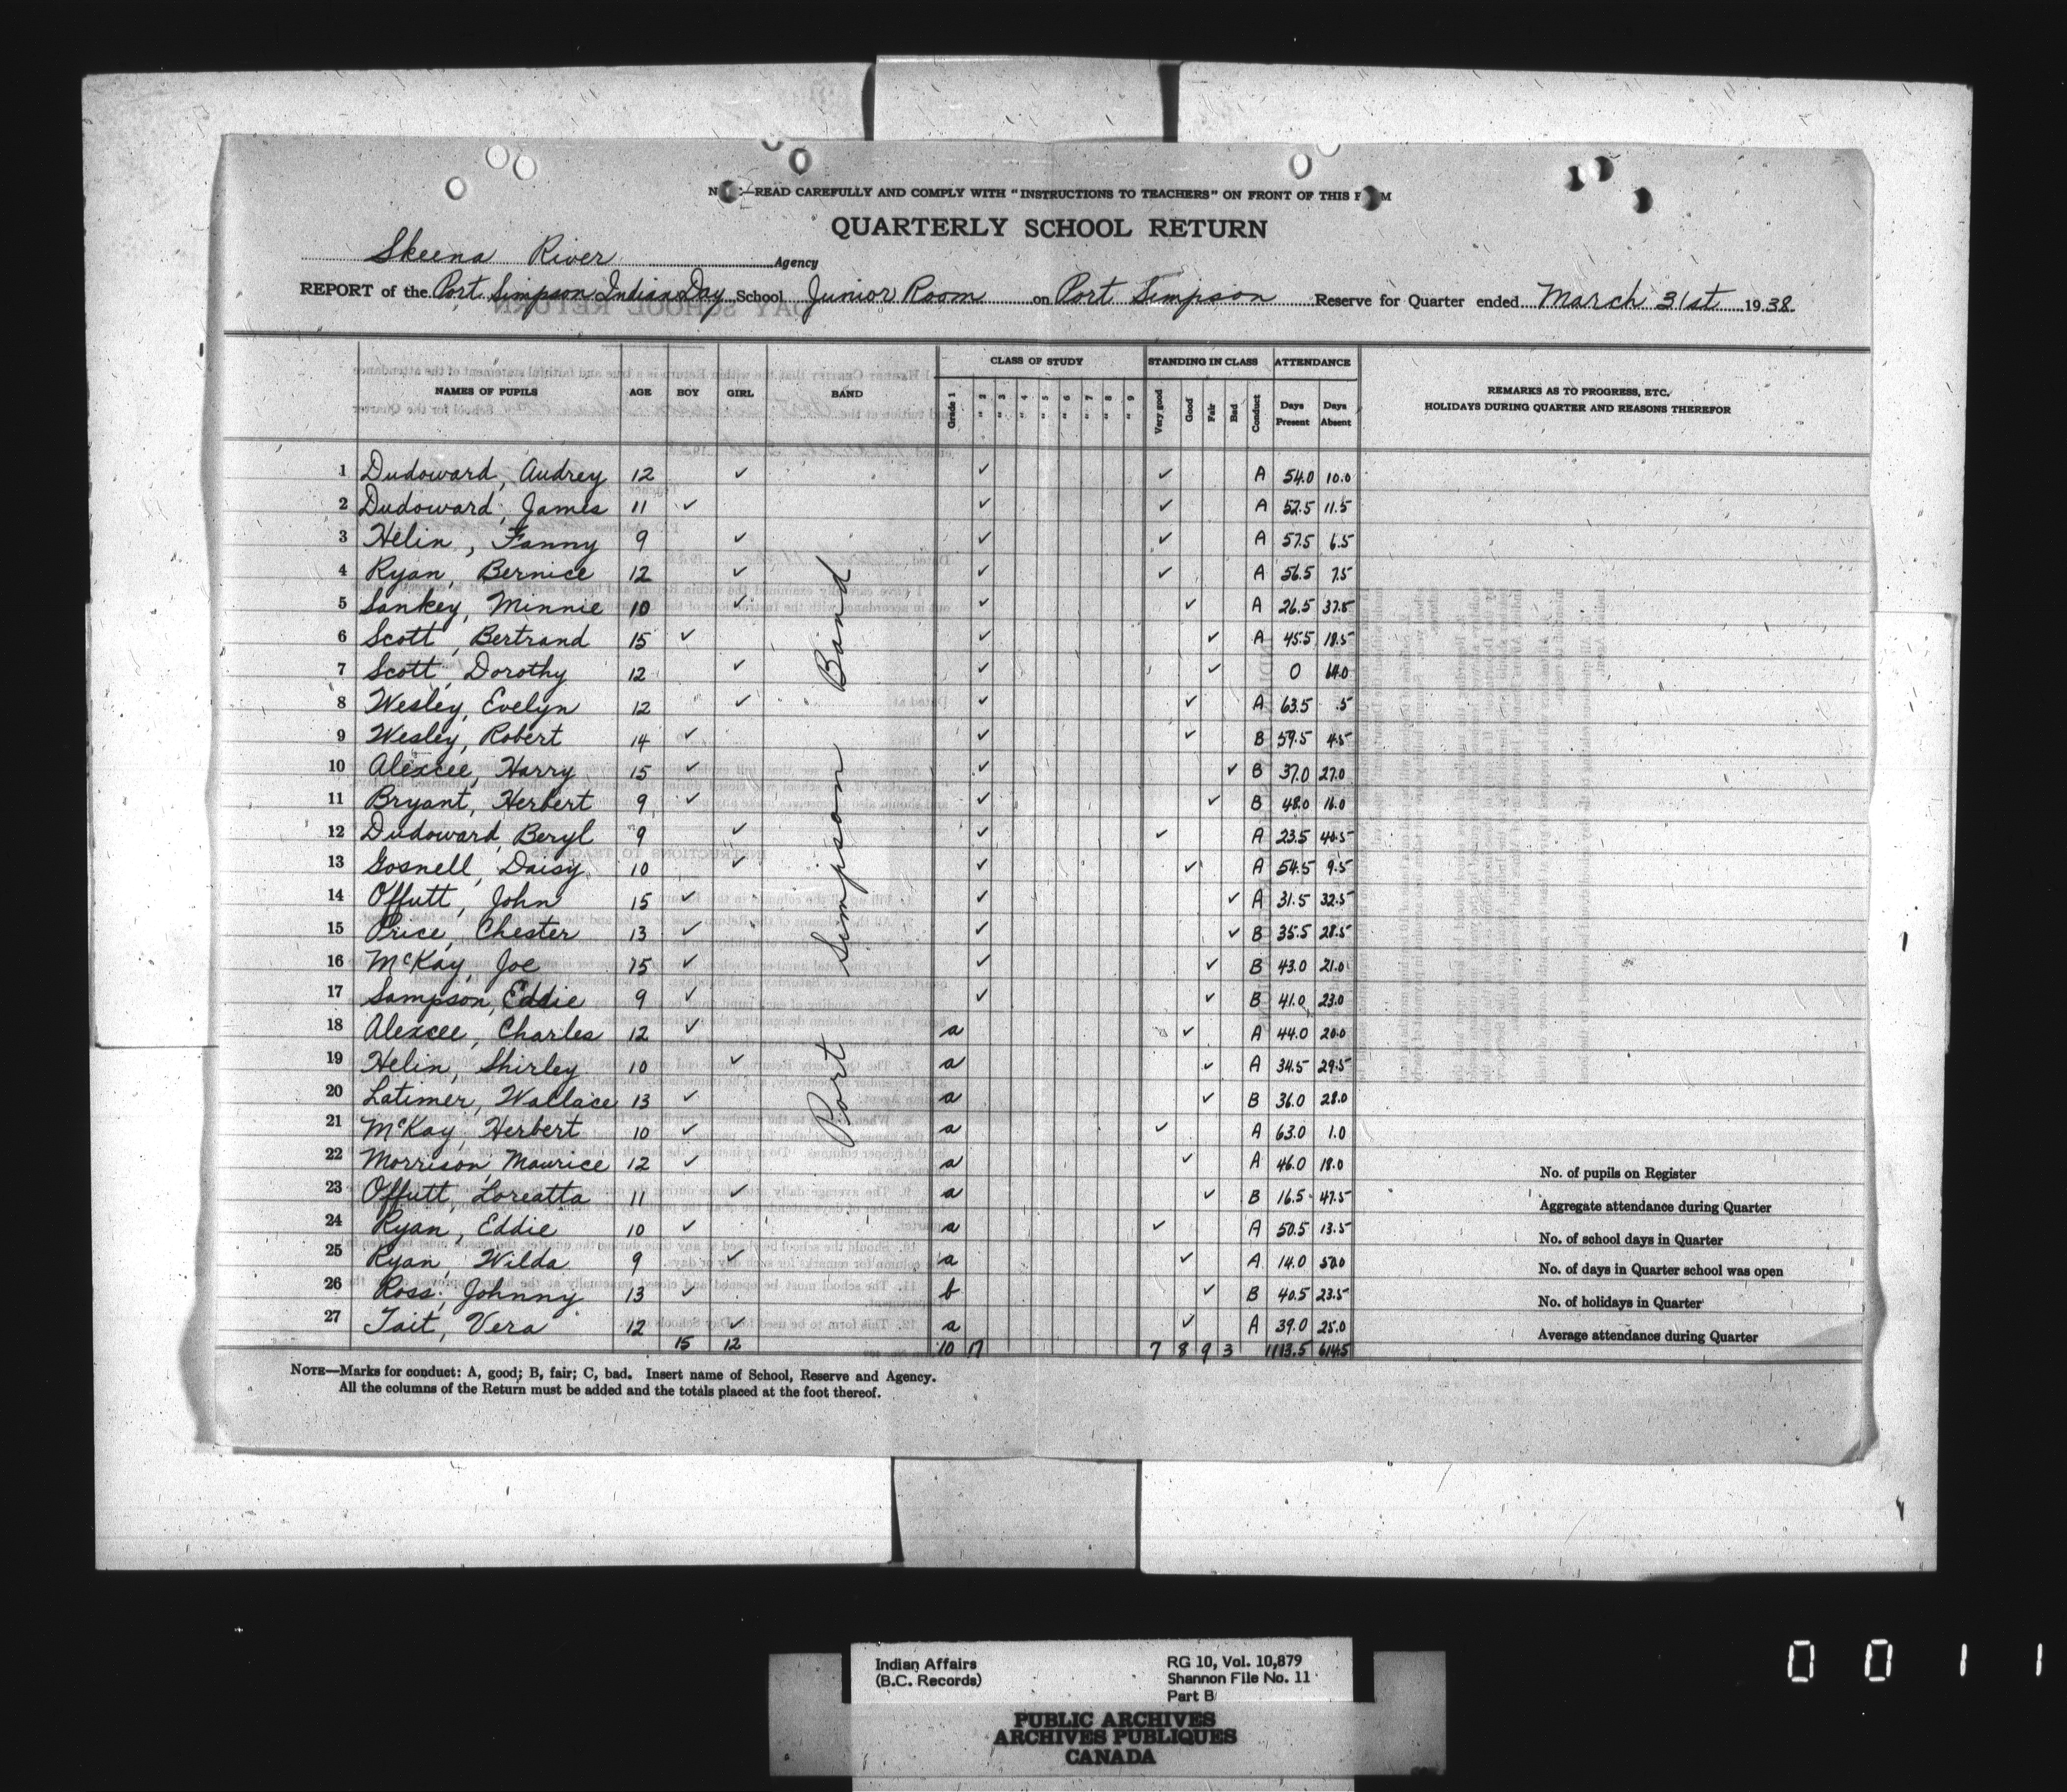 NOTE—READ CAREFULLY AND COMPLY WITH "INSTRUCTIONS TO TEACHERS" ON FRONT OF THIS FORM
QUARTERLY SCHOOL RETURN
Skeena River Agency
REPORT of the Port Simpson Indian Day School Junior Room on Port Simpson Reserve for Quarter ended March 31st 1938.
CLASS OF STUDY STANDING IN CLASS ATTENDANCE
NAMES OF PUPILS AGE BOY GIRL BAND Grade 1 " 2 " 3 " 4 " 5 " 6 " 7 " 8 " 9 Very good Good Fair Bad Conduct Days Present Days Absent REMARKS AS TO PROGRESS, ETC. HOLIDAYS DURING QUARTER AND REASONS THEREFOR
Port Simpson Band
1 Dudoward, Audrey 12 ✓ ✓ ✓ A 54.0 10.0
2 Dudoward, James 11 ✓ ✓ ✓ A 52.5 11.5
3 Helin, Fanny 9 ✓ ✓ ✓ A 57.5 6.5
4 Ryan, Bernice 12 ✓ ✓ ✓ A 56.5 7.5
5 Sankey, Minnie 10 ✓ ✓ ✓ A 26.5 37.5
6 Scott, Bertrand 15 ✓ ✓ ✓ A 45.5 18.5
7 Scott, Dorothy 12 ✓ ✓ ✓ 0 64.0
8 Wesley, Evelyn 12 ✓ ✓ ✓ A 63.5 .5
9 Wesley, Robert 14 ✓ ✓ ✓ B 59.5 4.5
10 Alexcee, Harry 15 ✓ ✓ ✓ B 37.0 27.0
11 Bryant, Herbert 9 ✓ ✓ ✓ B 48.0 16.0
12 Dudoward, Beryl 9 ✓ ✓ ✓ A 23.5 40.5
13 Gosnell, Daisy 10 ✓ ✓ ✓ A 54.5 9.5
14 Offutt, John 15 ✓ ✓ ✓ A 31.5 32.5
15 Price, Chester 13 ✓ ✓ ✓ B 35.5 28.5
16 McKay, Joe 15 ✓ ✓ ✓ B 43.0 21.0
17 Sampson, Eddie 9 ✓ ✓ ✓ B 41.0 23.0
18 Alexcee, Charles 12 ✓ a ✓ A 44.0 20.0
19 Helin, Shirley 10 ✓ a ✓ A 34.5 29.5
20 Latimer, Wallace 13 ✓ a ✓ B 36.0 28.0
21 McKay, Herbert 10 ✓ a ✓ A 63.0 1.0
22 Morrison, Maurice 12 ✓ a ✓ A 46.0 18.0
No. of pupils on Register
23 Offutt, Loreatta 11 ✓ a ✓ B 16.5 47.5
Aggregate attendance during Quarter
24 Ryan, Eddie 10 ✓ a ✓ A 50.5 13.5
No. of school days in Quarter
25 Ryan, Wilda 9 ✓ a ✓ A 14.0 50.0
No. of days in Quarter school was open
26 Ross, Johnny 13 ✓ b ✓ B 40.5 23.5
No. of holidays in Quarter
27 Tait, Vera 12 ✓ a ✓ A 39.0 25.0
Average attendance during Quarter
15 12 10 17 7 8 9 3 1113.5 614.5
NOTE—Marks for conduct: A, good; B, fair; C, bad. Insert name of School, Reserve and Agency.
All the columns of the Return must be added and the totals placed at the foot thereof.
Indian Affairs
(B.C. Records)
RG 10, Vol. 10,879
Shannon File No. 11
Part B
PUBLIC ARCHIVES
ARCHIVES PUBLIQUES
CANADA
0 0 1 1